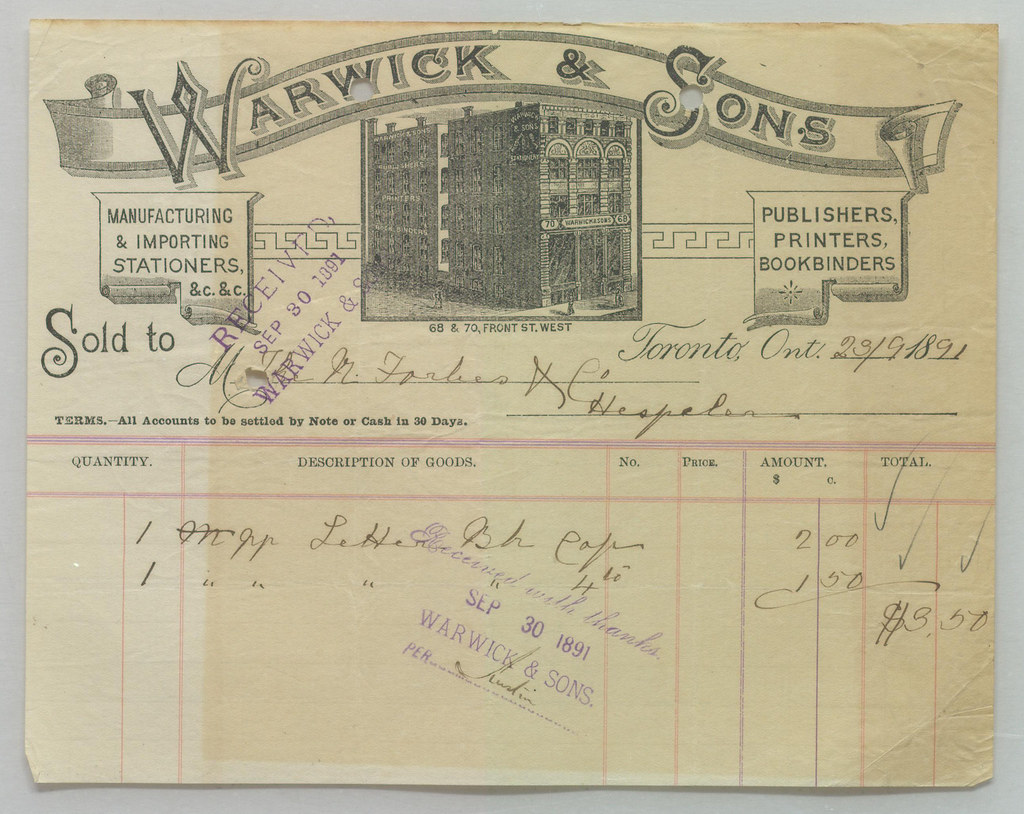 WARWICK & SONS
WARWICK & SONS
PUBLISHERS
PRINTERS
BOOKBINDERS
70 WARWICK & SONS 68
MANUFACTURING
& IMPORTING
STATIONERS,
&c. &c.
PUBLISHERS,
PRINTERS,
BOOKBINDERS
68 & 70, FRONT ST. WEST
RECEIVED,
SEP 30 1891
WARWICK & S
Sold to
Toronto, Ont. 23/9 1891
M N. Forbes & Co
Hespeler
TERMS.—All Accounts to be settled by Note or Cash in 30 Days.
QUANTITY. DESCRIPTION OF GOODS. No. PRICE. AMOUNT. TOTAL.
$ c.
1 M pp Letter Bk Cap 2 00
1 " " " " 4to 1 50
$3.50
Received with thanks.
SEP 30 1891
WARWICK & SONS.
PER
Austin